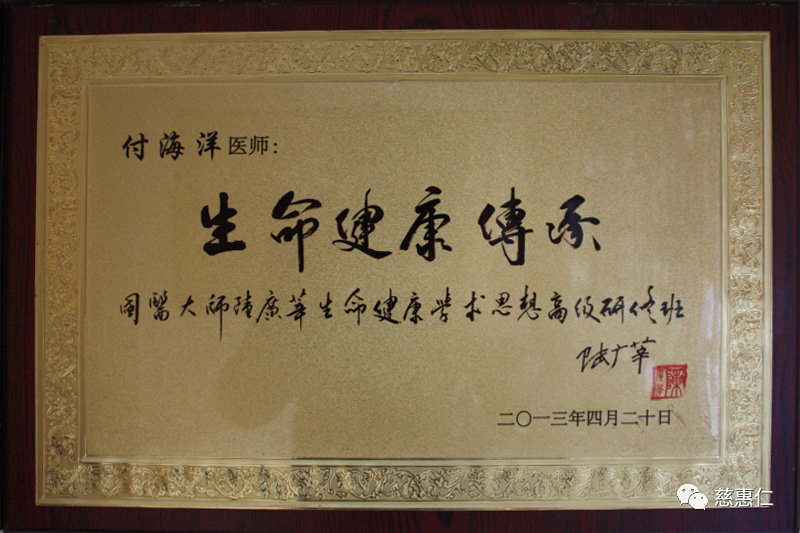 付海洋医师:
生命健康傳承
國醫大師陸廣莘生命健康學术思想高级研修班
陆广莘
二〇一三年四月二十日
慈惠仁